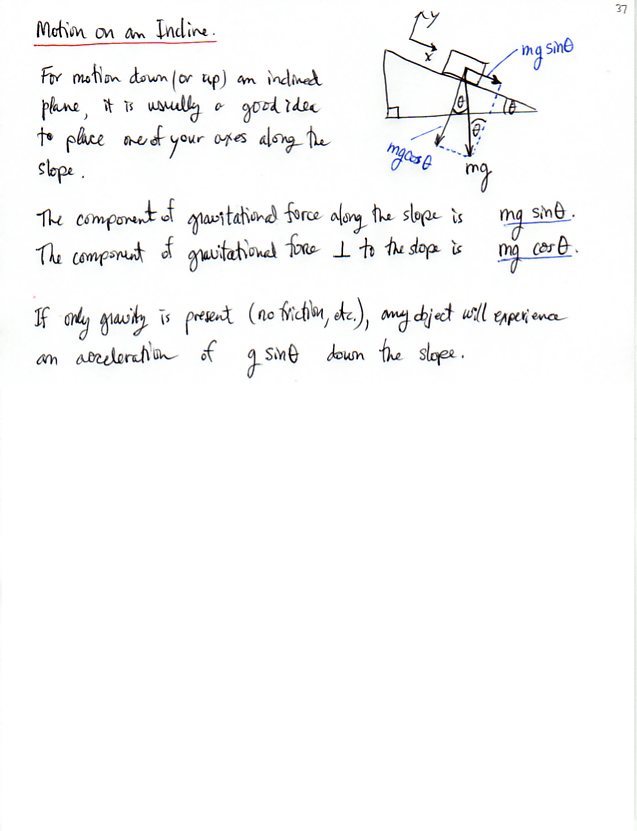 37
Motion on an Incline.
For motion down (or up) an inclined
plane, it is usually a good idea
to place one of your axes along the
slope.
y
x
mg sinθ
θ
θ
θ
mg cosθ
mg
The component of gravitational force along the slope is mg sinθ.
The component of gravitational force ⊥ to the slope is mg cosθ.
If only gravity is present (no friction, etc.), any object will experience
an acceleration of g sinθ down the slope.